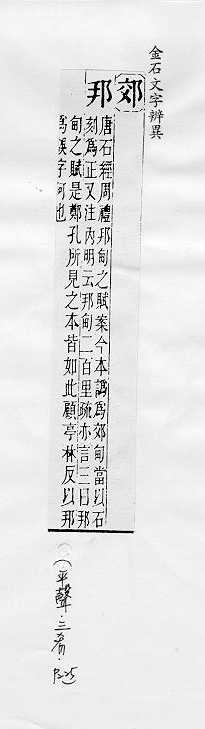 金石文字辨異
郊
邦
唐石經周禮邦甸之賦案今本譌爲郊甸當以石
刻爲正又注內明云邦甸二百里疏亦言三曰邦
甸之賦是鄭孔所見之本皆如此顧亭林反以邦
爲誤字何也
(平聲·三肴·P.25)